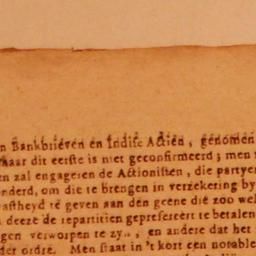 n Bankbrieven en Indise Actien, genomen
maar dit eerste is niet geconfirmeerd; men
en zal engageren de Actionisten, die partye
onderd, om die te brengen in verzekering by
astheyd te geven aan den geene die zoo wel
n deeze de repartitien geprefereert te betalen
gen verworpen te zyn, en andere dat het
der ordre. Men staat in 't kort een notable